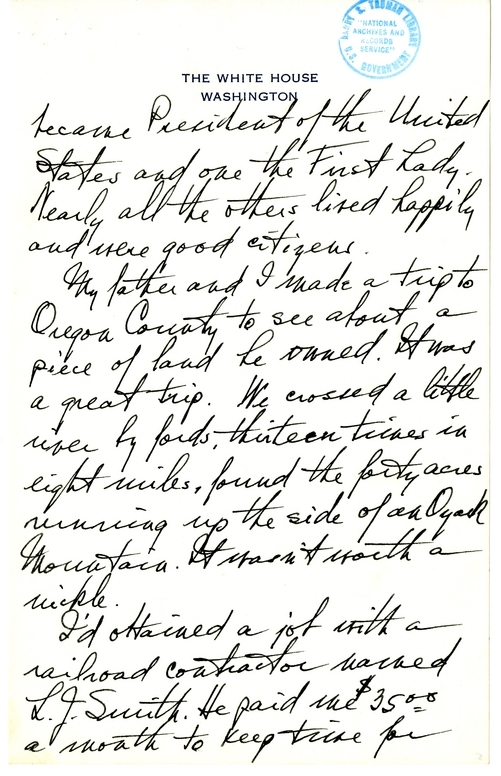 HARRY S. TRUMAN LIBRARY
"NATIONAL
ARCHIVES AND
RECORDS
SERVICE"
U.S. GOVERNMENT
THE WHITE HOUSE
WASHINGTON
became President of the United
States and one the First Lady.
Nearly all the others lived happily
and were good citizens.
My father and I made a trip to
Oregon County to see about a
piece of land he owned. It was
a great trip. We crossed a little
river by fords, thirteen times in
eight miles, found the forty acres
running up the side of an Ozark
Mountain. It wasn't worth a
nickle.
I'd obtained a job with a
railroad contractor named
L.J. Smith. He paid me $35.00
a month to keep time for